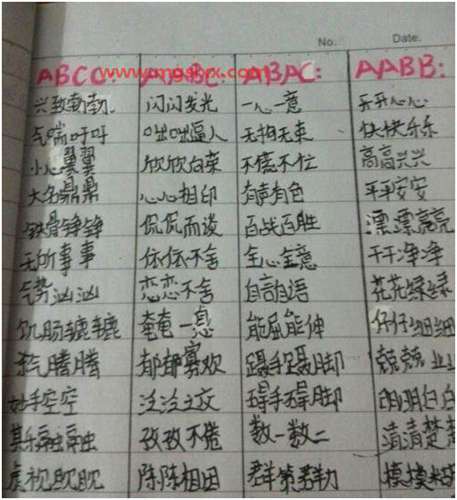 No. Date.
ABCC: AABC: ABAC: AABB:
兴致勃勃 闪闪发光 一心一意 开开心心
气喘吁吁 咄咄逼人 无拘无束 快快乐乐
小心翼翼 欣欣向荣 不慌不忙 高高兴兴
大名鼎鼎 心心相印 有声有色 平平安安
铁骨铮铮 侃侃而谈 百战百胜 漂漂亮亮
无所事事 依依不舍 全心全意 干干净净
气势汹汹 恋恋不舍 自言自语 花花绿绿
饥肠辘辘 奄奄一息 能屈能伸 仔仔细细
杀气腾腾 郁郁寡欢 蹑手蹑脚 兢兢业业
妙手空空 泛泛之交 碍手碍脚 明明白白
其乐融融 孜孜不倦 数一数二 清清楚楚
虎视眈眈 陈陈相因 群策群力 模模糊糊